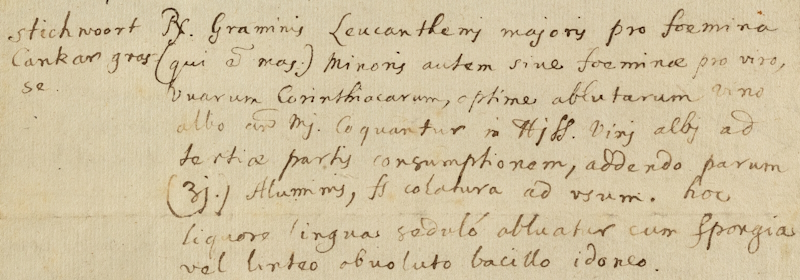 stichwoort ℞. Graminis Leucanthemi majoris pro foemina
Cankar gras (qui e͂ mas.) Minoris autem sive foeminae pro viro,
se. Vvarum Corinthiacarum, optime ablutarum vino
albo an̄ Mj. Coquantur in ℔ss. Vini albj ad
tertiae partis consumptionem, addendo parum
(ʒj.) Aluminis, fs colatura ad vsum. hoc
liquore lingua seduló abluatur cum spongia
vel linteo obvoluto bacillo idoneo.